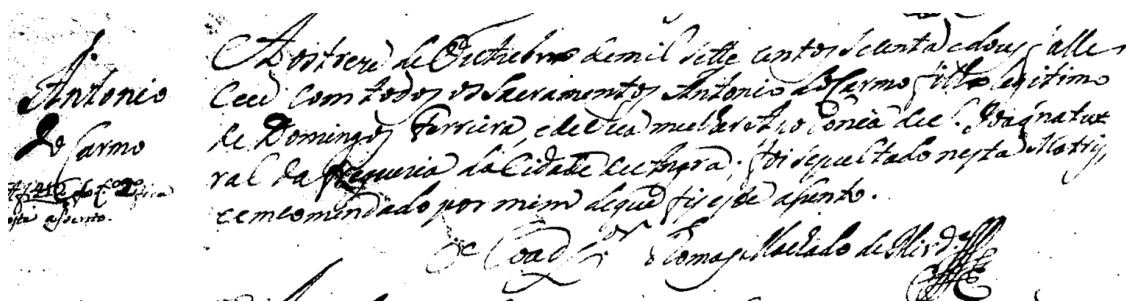 Antonio
do Carmo
Aos treze de Outubro de mil sette centos secenta e dous falle
ceo com todos os Sacramentos Antonio do Carmo filho legitimo
de Domingos Ferreira, e de sua molher Antonia de natu
ral da freguezia da Cidade de foi sepultado nesta Matriz,
e emcomendado por mim de que fis este asento.
O Coad.or Thomas Machado de